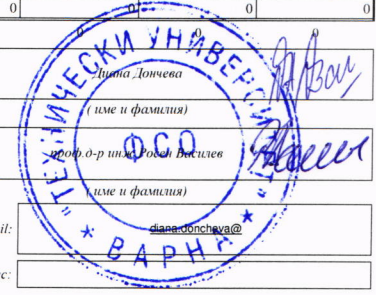 0 0 0 0
0 0 0 0
Диана Дончева
( име и фамилия)
проф.д-р инж. Росен Василев
( име и фамилия)
il: diana.doncheva@
с:
"ТЕХНИЧЕСКИ УНИВЕРСИТЕТ"
ФСО
* ВАРНА *